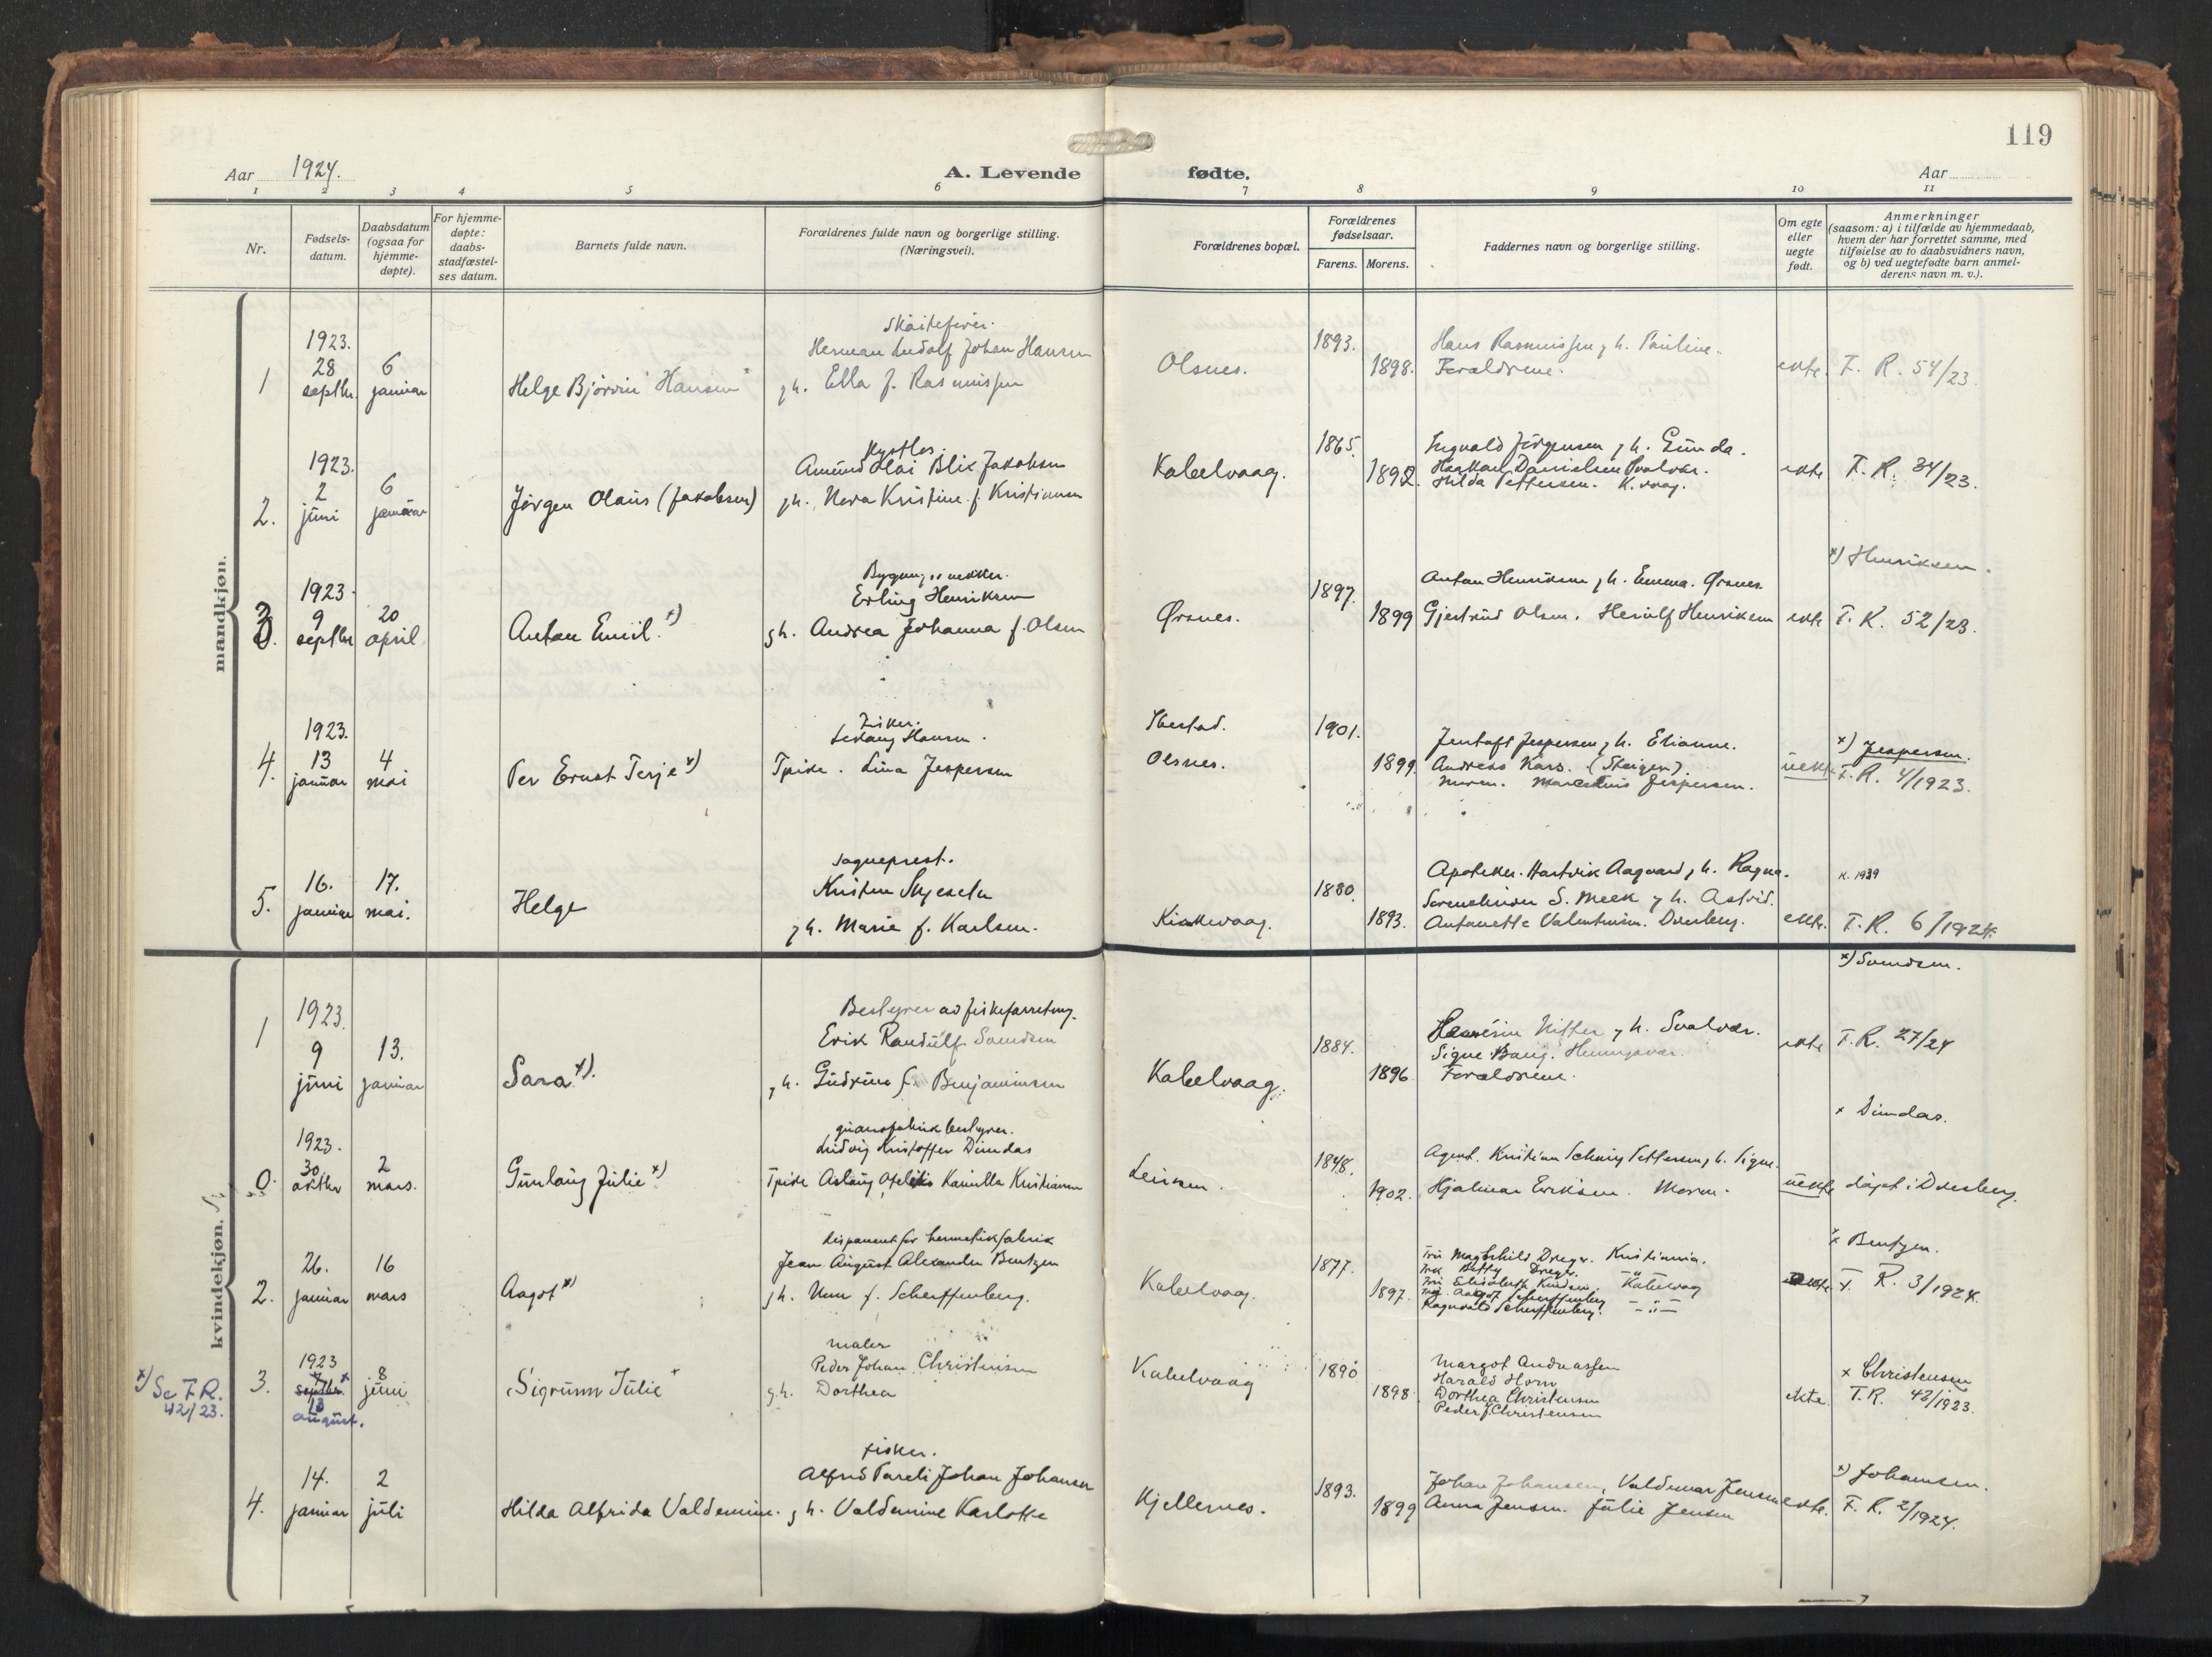 119
Aar 1924. A. Levende fødte. Aar
1 2 3 4 5 6 7 8 9 10 11
Nr.
Fødsels-
datum.
Daabsdatum
(ogsaa for
hjemme-
døpte).
For hjemme-
døpte:
daabs-
stadfæstel-
ses datum.
Barnets fulde navn.
Forældrenes fulde navn og borgerlige stilling.
(Næringsvei).
Forældrenes bopæl.
Forældrenes
fødselsaar.
Farens. Morens.
Faddernes navn og borgerlige stilling.
Om egte
eller
uegte
født.
Anmerkninger
(saasom: a) i tilfælde av hjemmedaab,
hvem der har forrettet samme, med
tilføielse av to daabsvidners navn,
og b) ved uegtefødte barn anmel-
derens navn m. v.).
mandkjøn.
1
1923.
28
septbr.
6
januar
Helge Bjørvin Hansen
Herman Ludolf Johan Hansen
g h. Ella f. Rasmussen
Olsnes.
1893.
1898.
Hans Rasmussen g h. Pauline.
Foraldrene.
ekte.
F. R. 54/23.
2.
1923.
2
juni
6
januar
Jørgen Olaus (Jakobsen)
Amund Olai Blix Jakobsen
g h. Nora Kristine f. Kristiansen
Kabelvaag.
1865.
1892.
Ingvald Jørgensen g h. Gunda.
Haakon Danielsen Svolvær.
Hilda Pettersen. K.vaag.
ekte
F. R. 34/23.
3.
1923.
9
septbr
20
april
Anton Emil. x)
Erling Henriksen
g h. Andrea Johanna f. Olsen
Ørsnes.
1897.
1899
Anton Henriksen g h. Emma. Ørsnes.
Gjertrud Olsen. Herulf Henriksen
ekte
x) Henriksen.
F. R. 52/23.
4.
1923.
13
januar
4
mai
Per Ernst Terje x)
Fisker.
Hansen.
Tpike. Lina Jespersen
Ibestad.
Olsnes.
1901.
1899.
Jentoft Jespersen g h. Elianne.
Andreas Kars. (Steigen)
Moren. Marcelius Jespersen.
uekte
x) Jespersen.
F. R. 4/1923.
5.
16.
januar
17.
mai.
Helge
sogneprest.
Kristen Skjeseth
g h. Marie f. Karlsen.
Kirkevaag.
1880.
1893.
Apoteker Hartvik Aagaard g h. Ragna.
Sorenskriver S. Meek g h. Astrid.
Antonette Valentinsen. Drøbak.
ekte.
K. 1939
F. R. 6/1924.
kvindekjøn.
1
1923.
9
juni
13.
januar
Sara x).
Bestyrer av fiskeforretning.
Erik Randulf Svendsen
g h. Gudrun f. Benjaminsen
Kabelvaag.
1884.
1896
g h. Svolvær.
Signe Bang. Henningsvær.
Foraldrene.
ekte
x) Svendsen.
F. R. 27/24
0.
1923.
30
oktbr
2
mars.
Gunlaug Julie x)
guanofabrikbestyrer.
Ludvig Kristoffer Dundas
Tpike Aslaug Kamilla Kristiansen
1848.
1902.
Agent. Kristian Schøning Pettersen g h. Signe.
Hjalmar Eriksen. Moren.
uekte
x Dundas.
døpt i
2.
26.
januar
16
mars
Aagot x)
disponent for hermetikfabrik
Jean August Alexander Bentzen
g h. Unn f. Scheffenberg.
Kabelvaag.
1877.
1897.
Fru Magnhild Dreyer. Kristiania.
Frk Betty Dreyer. — " —
Fru Elisabeth Knudsen. Kabelvaag
Frk. Aagot Scheffenberg
Ragnvald Scheffenberg. — " —
ekte
x Bentzen.
F. R. 3/1924.
x) Se F.R.
42/23.
3.
1923
7 x
septbr.
13
august.
8
juni
Sigrunn Julie x
maler
Peder Johan Christensen
g.h. Dorthea
Kabelvaag
1890
1898
Margot Andreassen
Harald Horn
Dorthea Christensen
Peder J. Christensen
ekte.
x Christensen
F. R. 42/1923.
4.
14.
januar
2
juli
Hilda Alfrida Valdemine.
fisker.
Alfred Pareli Johan Johansen
g h. Valdemine Karlotte
Kjellernes.
1893.
1899
Johan Johansen, Valdemar Jensen
Anna Jensen. Julie Jensen
ekte.
x) Johansen.
F. R. 2/1924.